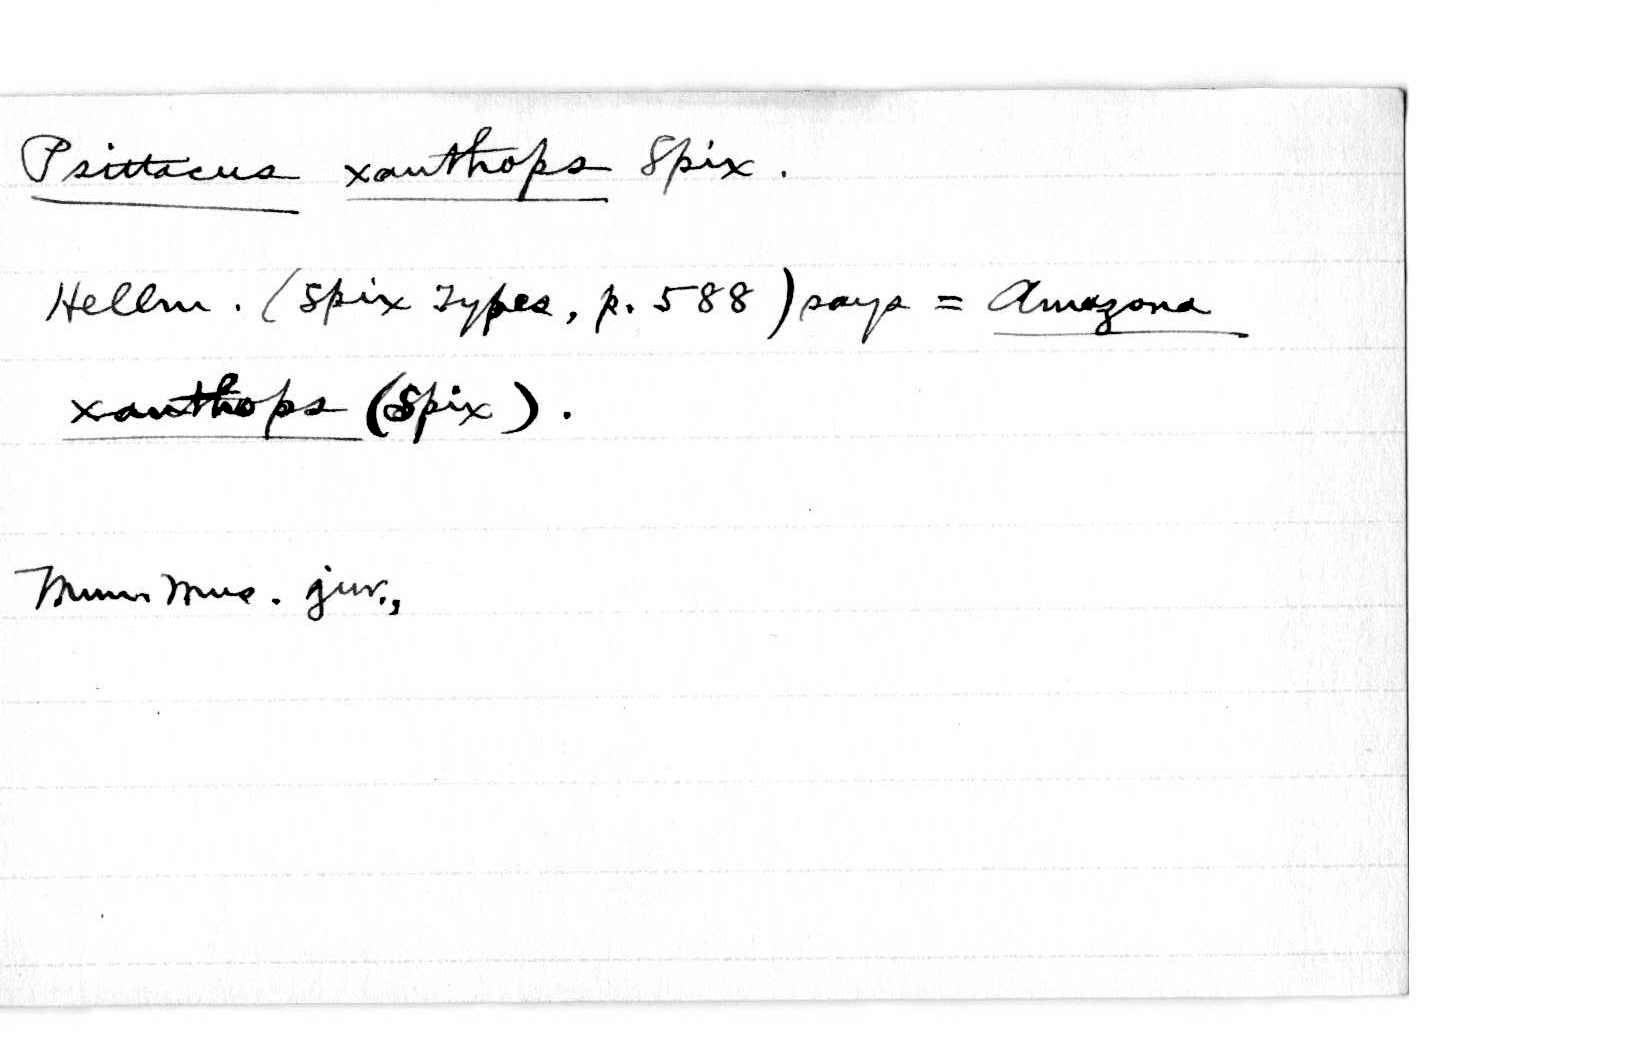 Psittacus xanthops Spix.
Hellm. (Spix Types, p. 588) says = Amazona
xanthops (Spix).
Mus. juv.,